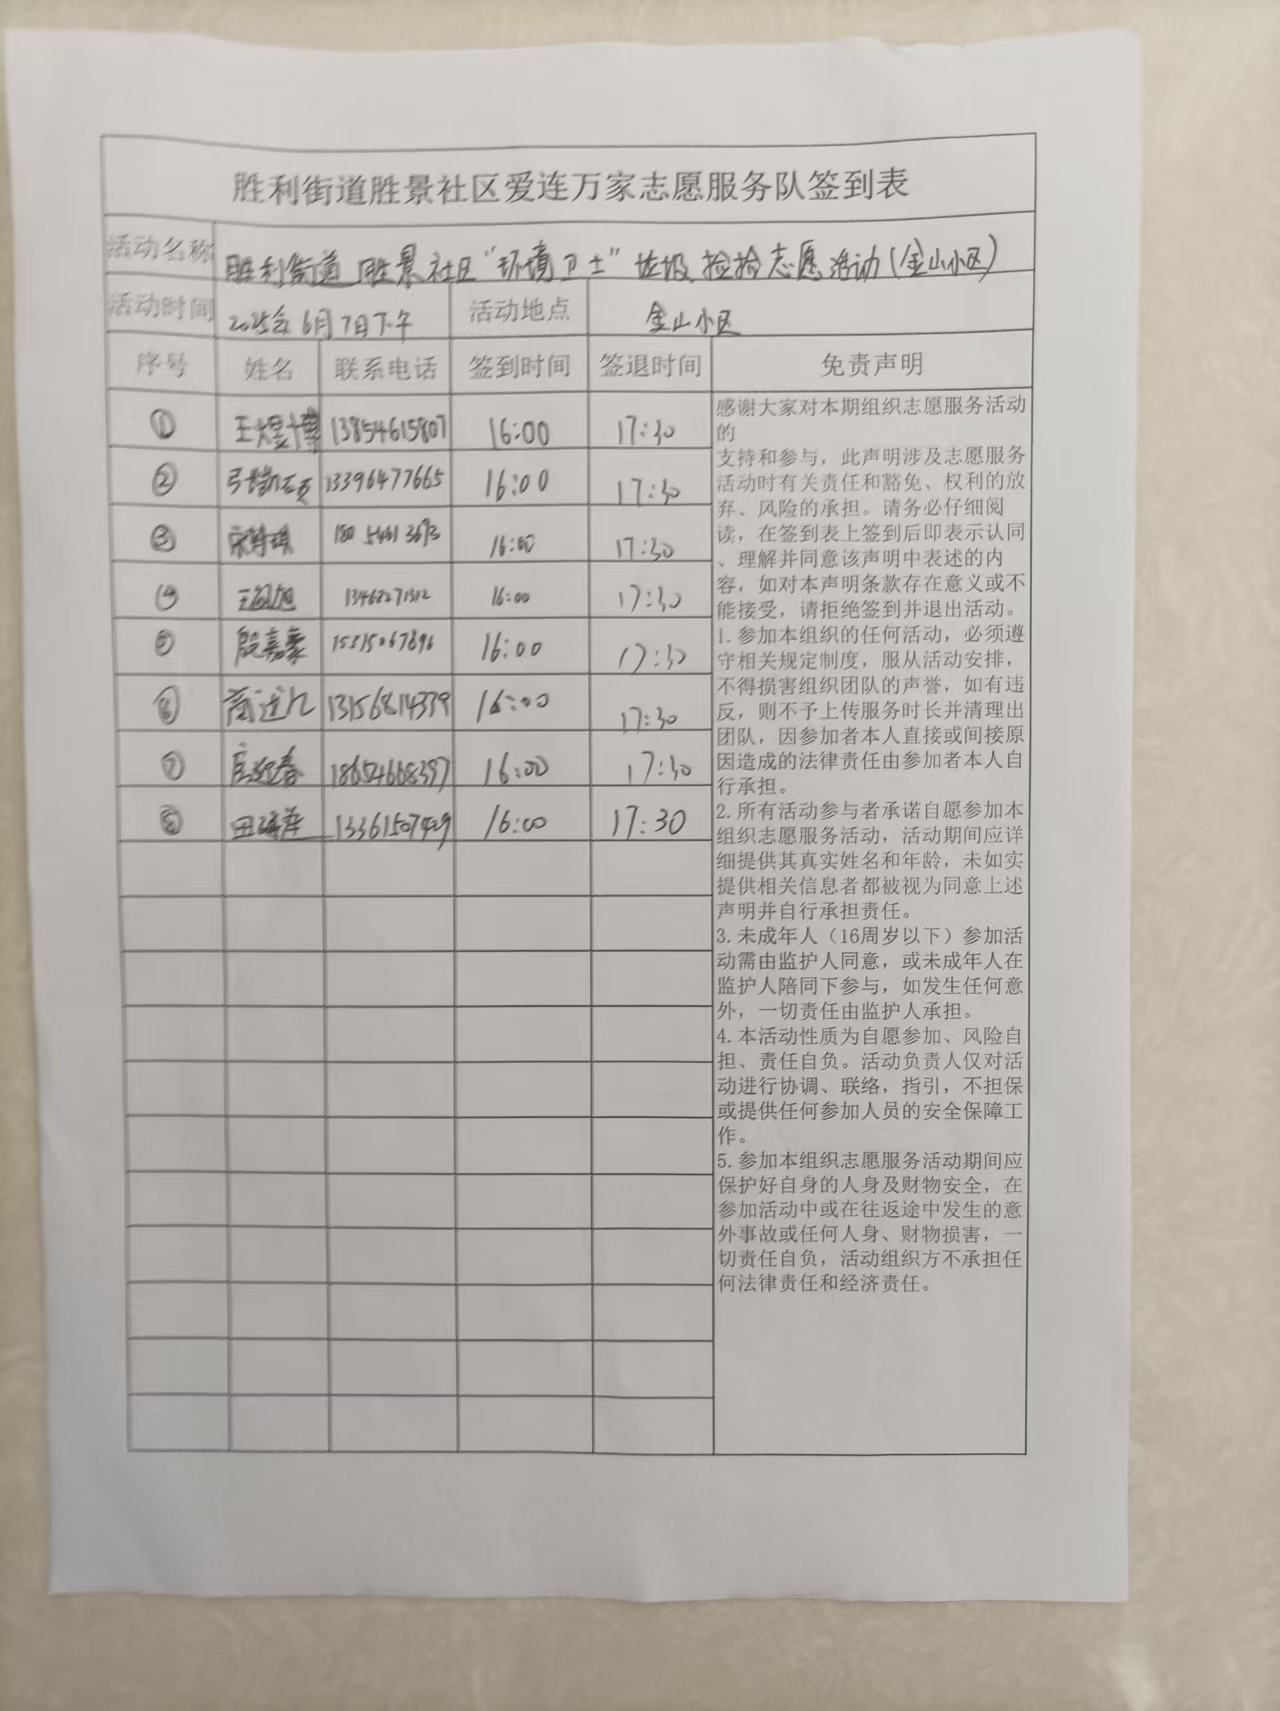 胜利街道胜景社区爱连万家志愿服务队签到表
活动名称 胜利街道胜景社区“环境卫士”垃圾捡拾志愿活动(金山小区)
活动时间 2025年6月7日下午 活动地点 金山小区
序号 姓名 联系电话 签到时间 签退时间 免责声明
① 王煜博 13854615807 16:00 17:30
② 13396477665 16:00 17:30
③ 16:00 17:30
④ 16:00 17:30
⑤ 殷嘉豪 16:00 17:30
⑥ 13156814339 16:00 17:30
⑦ 18654668397 16:00 17:30
⑧ 13361507429 16:00 17:30
感谢大家对本期组织志愿服务活动
的
支持和参与，此声明涉及志愿服务
活动时有关责任和豁免、权利的放
弃、风险的承担。请务必仔细阅
读，在签到表上签到后即表示认同
、理解并同意该声明中表述的内
容，如对本声明条款存在意义或不
能接受，请拒绝签到并退出活动。
1.参加本组织的任何活动，必须遵
守相关规定制度，服从活动安排，
不得损害组织团队的声誉，如有违
反，则不予上传服务时长并清理出
团队，因参加者本人直接或间接原
因造成的法律责任由参加者本人自
行承担。
2.所有活动参与者承诺自愿参加本
组织志愿服务活动，活动期间应详
细提供其真实姓名和年龄，未如实
提供相关信息者都被视为同意上述
声明并自行承担责任。
3.未成年人（16周岁以下）参加活
动需由监护人同意，或未成年人在
监护人陪同下参与，如发生任何意
外，一切责任由监护人承担。
4.本活动性质为自愿参加、风险自
担、责任自负。活动负责人仅对活
动进行协调、联络，指引，不担保
或提供任何参加人员的安全保障工
作。
5.参加本组织志愿服务活动期间应
保护好自身的人身及财物安全，在
参加活动中或在往返途中发生的意
外事故或任何人身、财物损害，一
切责任自负，活动组织方不承担任
何法律责任和经济责任。